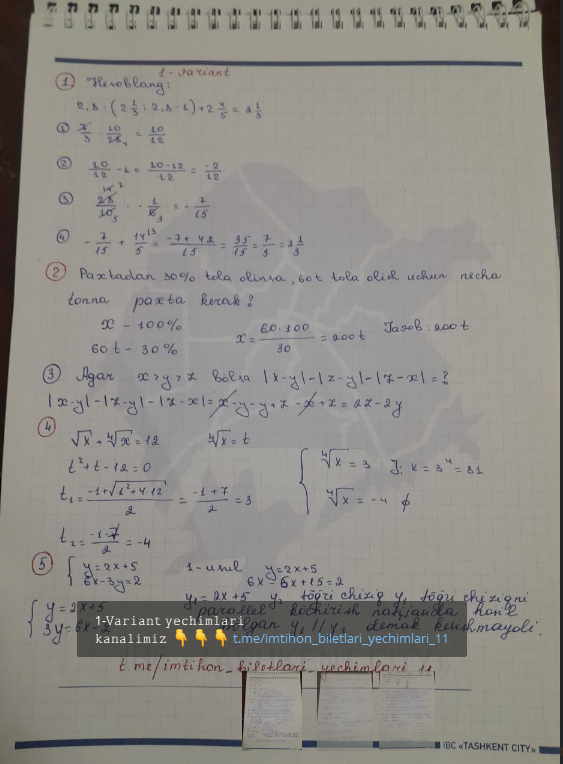 1-variant
① Hisoblang:
2,8 · (2 1/3 : 2,8 - 1) + 2 4/5 = 2 1/3
① 7/3 · 10/28 = 10/12
② 10/12 - 1 = 10-12/12 = -2/12
③ 28/10 · - 1/6 = - 7/15
④ - 7/15 + 14/5 = -7+42/15 = 35/15 = 7/3 = 2 1/3
② Paxtadan 30% tola olinsa, 60t tola olish uchun necha
tonna paxta kerak?
x - 100%
60t - 30%
x = 60·100/30 = 200t Javob: 200t
③ Agar x>y>z bo'lsa |x-y|-|z-y|-|z-x|=?
|x-y|-|z-y|-|z-x|= x-y-y+z-x+z = 2z-2y
④
√x + ∜x = 12 ∜x = t
t² + t - 12 = 0
t₁ = -1+√1²+4·12/2 = -1+7/2 = 3
t₂ = -1-7/2 = -4
∜x = 3 J: x = 3⁴ = 81
∜x = -4 ∅
⑤ { y = 2x+5
6x-3y=2
1-usul y=2x+5
6x - 6x+15=2
{ y = 2x+5
3y = 6x-2
y₁ = 2x+5 y₂ to'g'ri chiziq y₁ to'g'ri chiziqni
parallel ko'chirish natijasida hosil
bo'lgan y₁ // y₂ demak kesishmaydi.
1-Variant yechimlari
kanalimiz 👇👇👇 t.me/imtihon_biletlari_yechimlari_11
t.me/imtihon_biletlari_yechimlari_11
IBC «TASHKENT CITY»